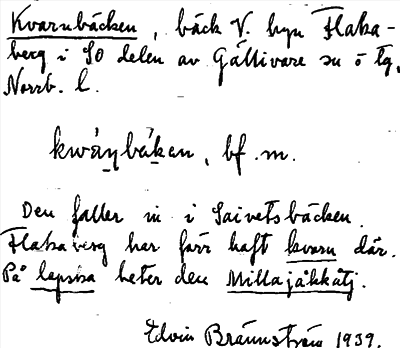 Kvarnbäcken, bäck V. byn Flaka-
berg i SO delen av Gällivare sn o tg,
Norrb. l.
kwàṇbä́ḱen, bf. m.
Den faller in i Saivetsbäcken.
Flakaberg har förr haft kvarn där.
På lapska heter den Millajåkkåtj.
Edvin Brännström 1939.